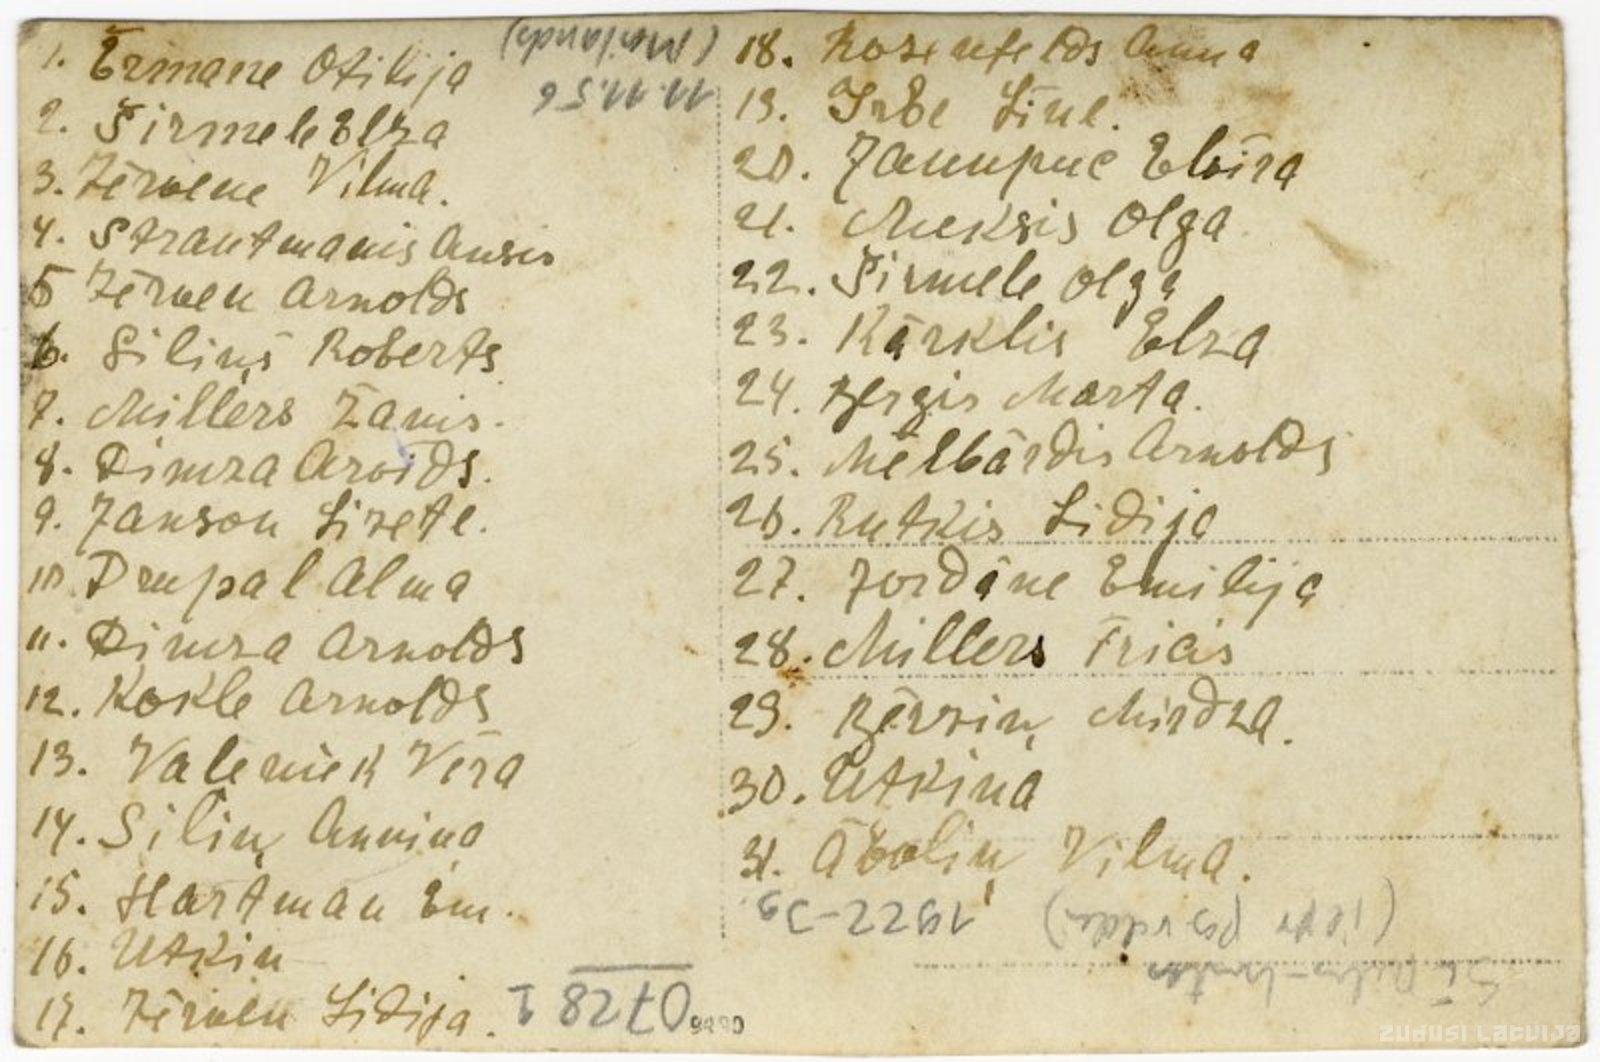 1. Ērmane Otilija
2. Sirmele Elza
3. Zērvene Vilma.
4. Strautmanis Ansis
5 Zērven Arnolds
6. Siliņš Roberts
7. Millers Žanis.
8. Dimza Arvīds.
9. Janson Lizete.
10 Drupal Alma
11. Dimza Arnolds
12. Kokle Arnolds
13. Valeniek Vēra
14. Siliņ Anniņa
15. Hartman Em.
16. Utkin
17. Zērven Lidija.
18. Rozenfelds Anna
19. Irbe Līne.
20. Jaunpue Elvīra
21. Mueksis Olga
22. Sirmele Olga
23. Kārklis Elza
24. Bergis Marta.
25. Mēlbārdis Arnolds
26. Rutkis Lidija
27. Jordāne Emilija
28. Millers Fricis
29. Bērziņ Mirdza.
30. Utkina
31. Āboliņ Vilma.
11.11.56
0728
1922-
ZUDUSI LATVIJA